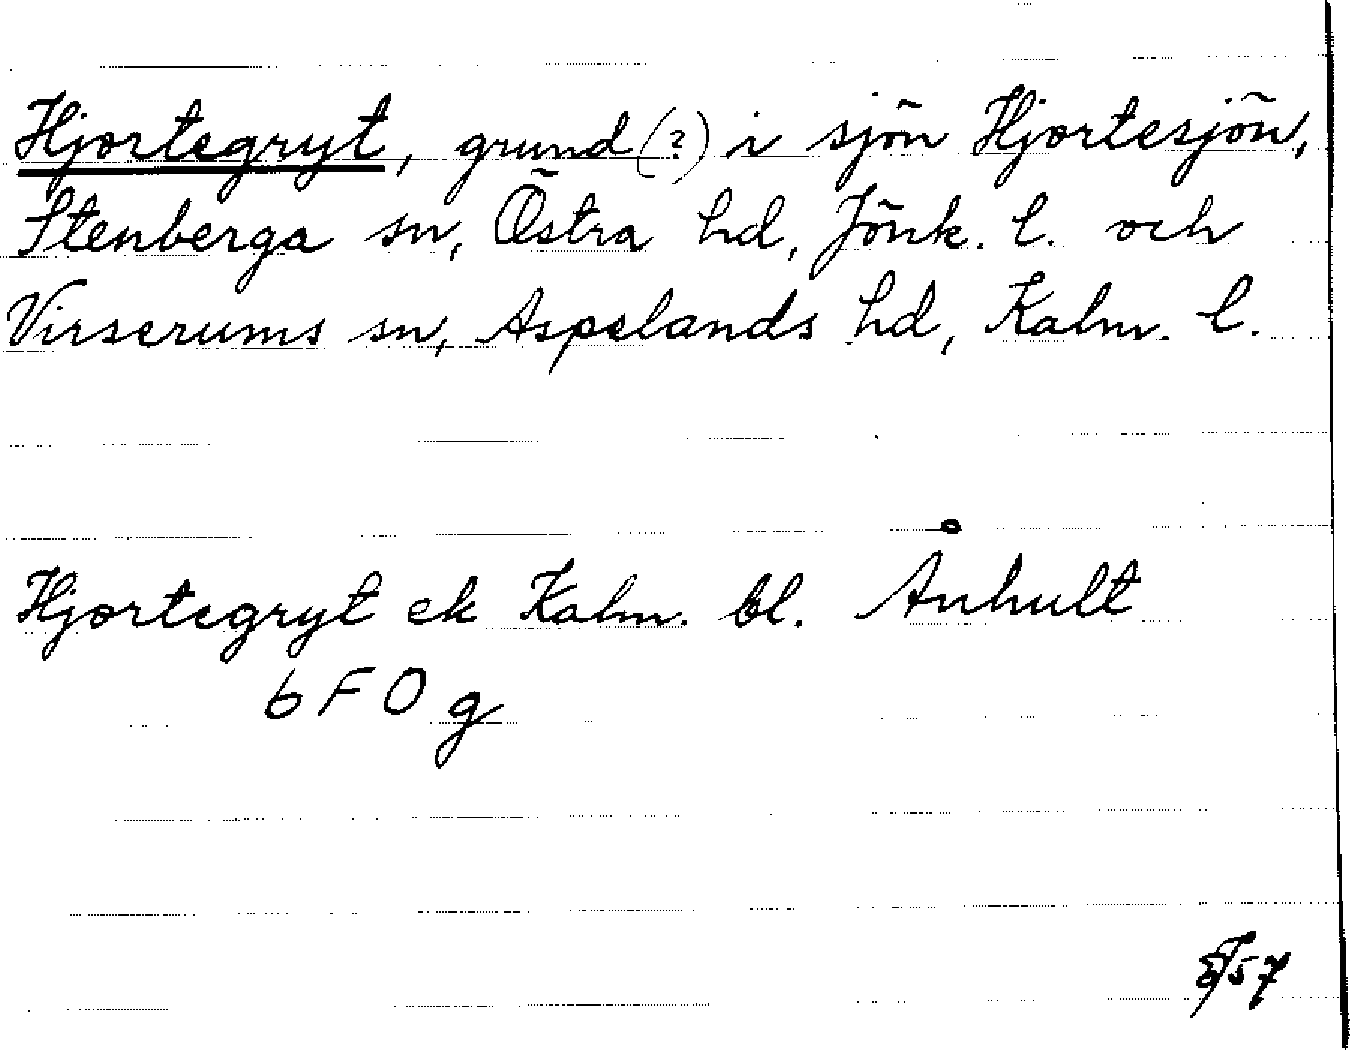 Hjortegryt, grund (?) i sjön Hjortesjön,
Stenberga sn, Östra hd, Jönk. l. och
Virserums sn, Aspelands hd, Kalm. l.
Hjortegryt ek Kalm. bl. Ånhult
6 F 0 g
57